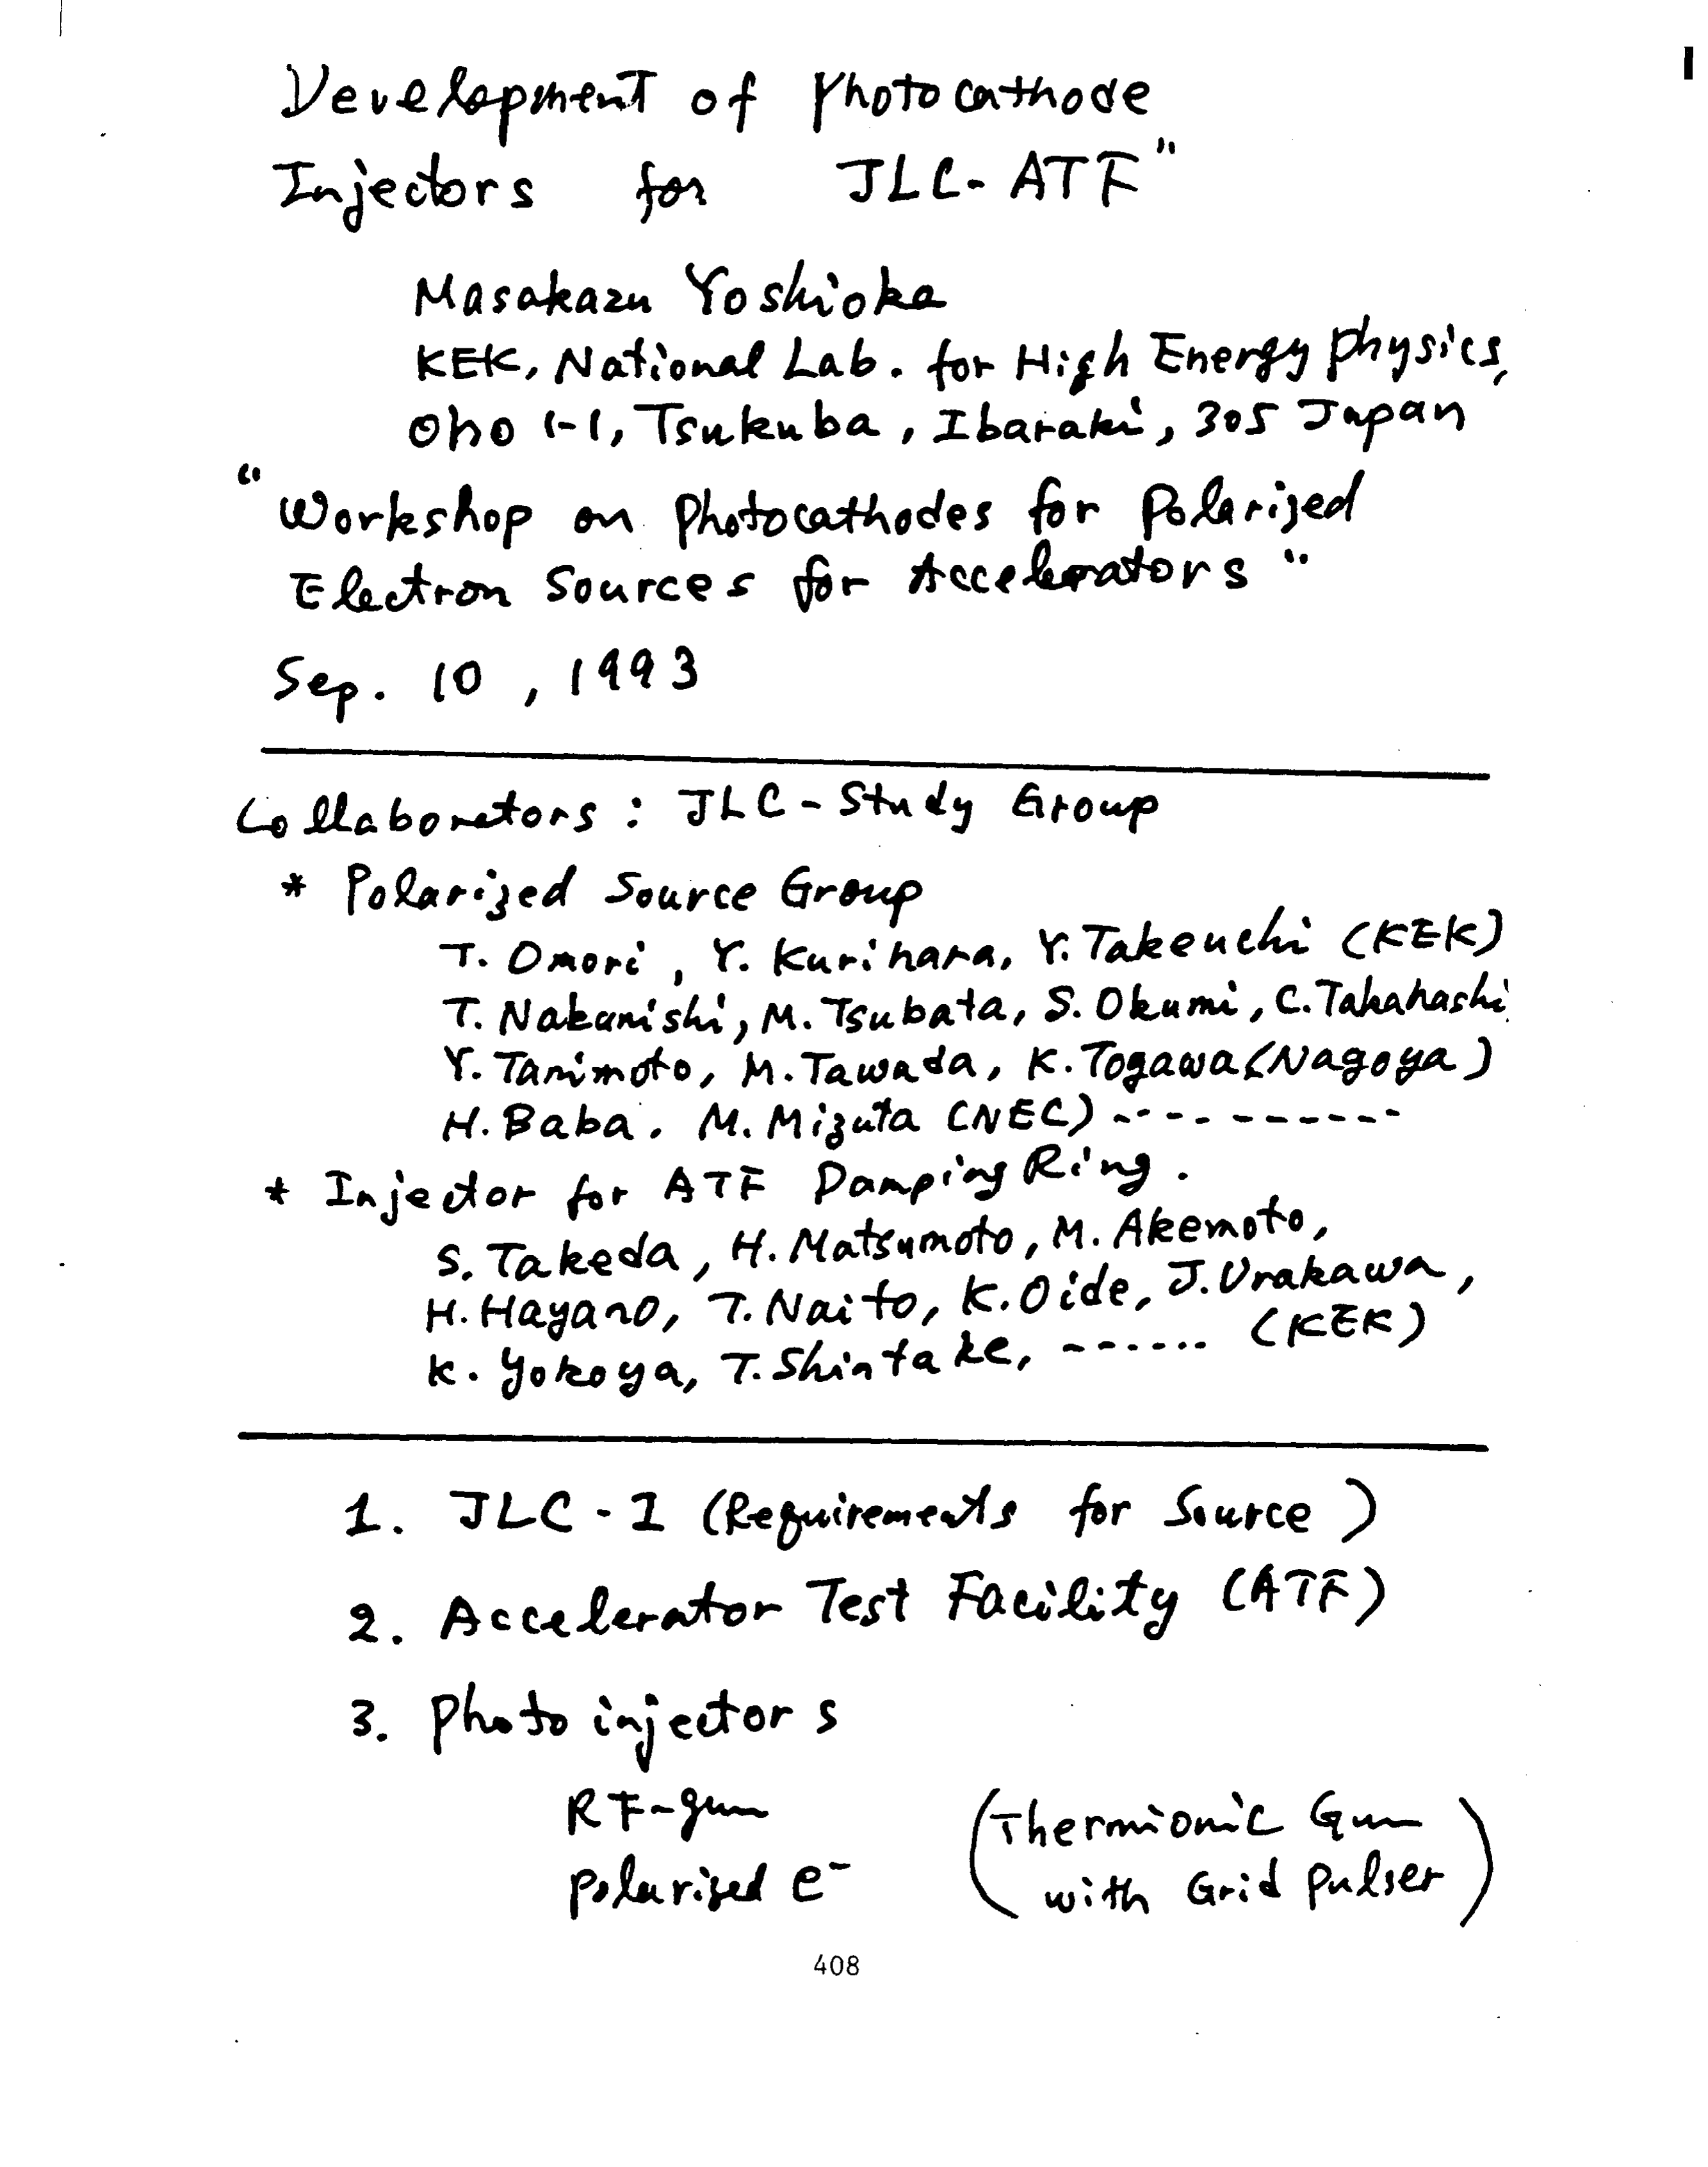 Development of Photocathode
Injectors for JLC-ATF"
Masakazu Yoshioka
KEK, National Lab. for High Energy physics,
Oho 1-1, Tsukuba, Ibaraki, 305 Japan
"Workshop on Photocathodes for Polarized
Electron Sources for Accelerators"
Sep. 10, 1993
Collaboretors : JLC-Study Group
* Polarized Source Group
T. Omori, Y. Kurihara, Y. Takeuchi (KEK)
T. Nakanishi, M. Tsubata, S. Okumi, C. Takahashi
Y. Tanimoto, M. Tawada, K. Togawa (Nagoya)
H. Baba. M. Mizuta (NEC) ----------
* Injector for ATF Damping Ring.
S. Takeda, H. Matsumoto, M. Akemoto,
H. Hayano, T. Naito, K. Oide, J. Urakawa,
K. Yokoya, T. Shintake, ------ (KEK)
1. JLC-I (Requirements for Source)
2. Accelerator Test Facility (ATF)
3. Photo injectors
RF-gun
polarized e⁻
(Thermionic Gun
with Grid pulser)
408